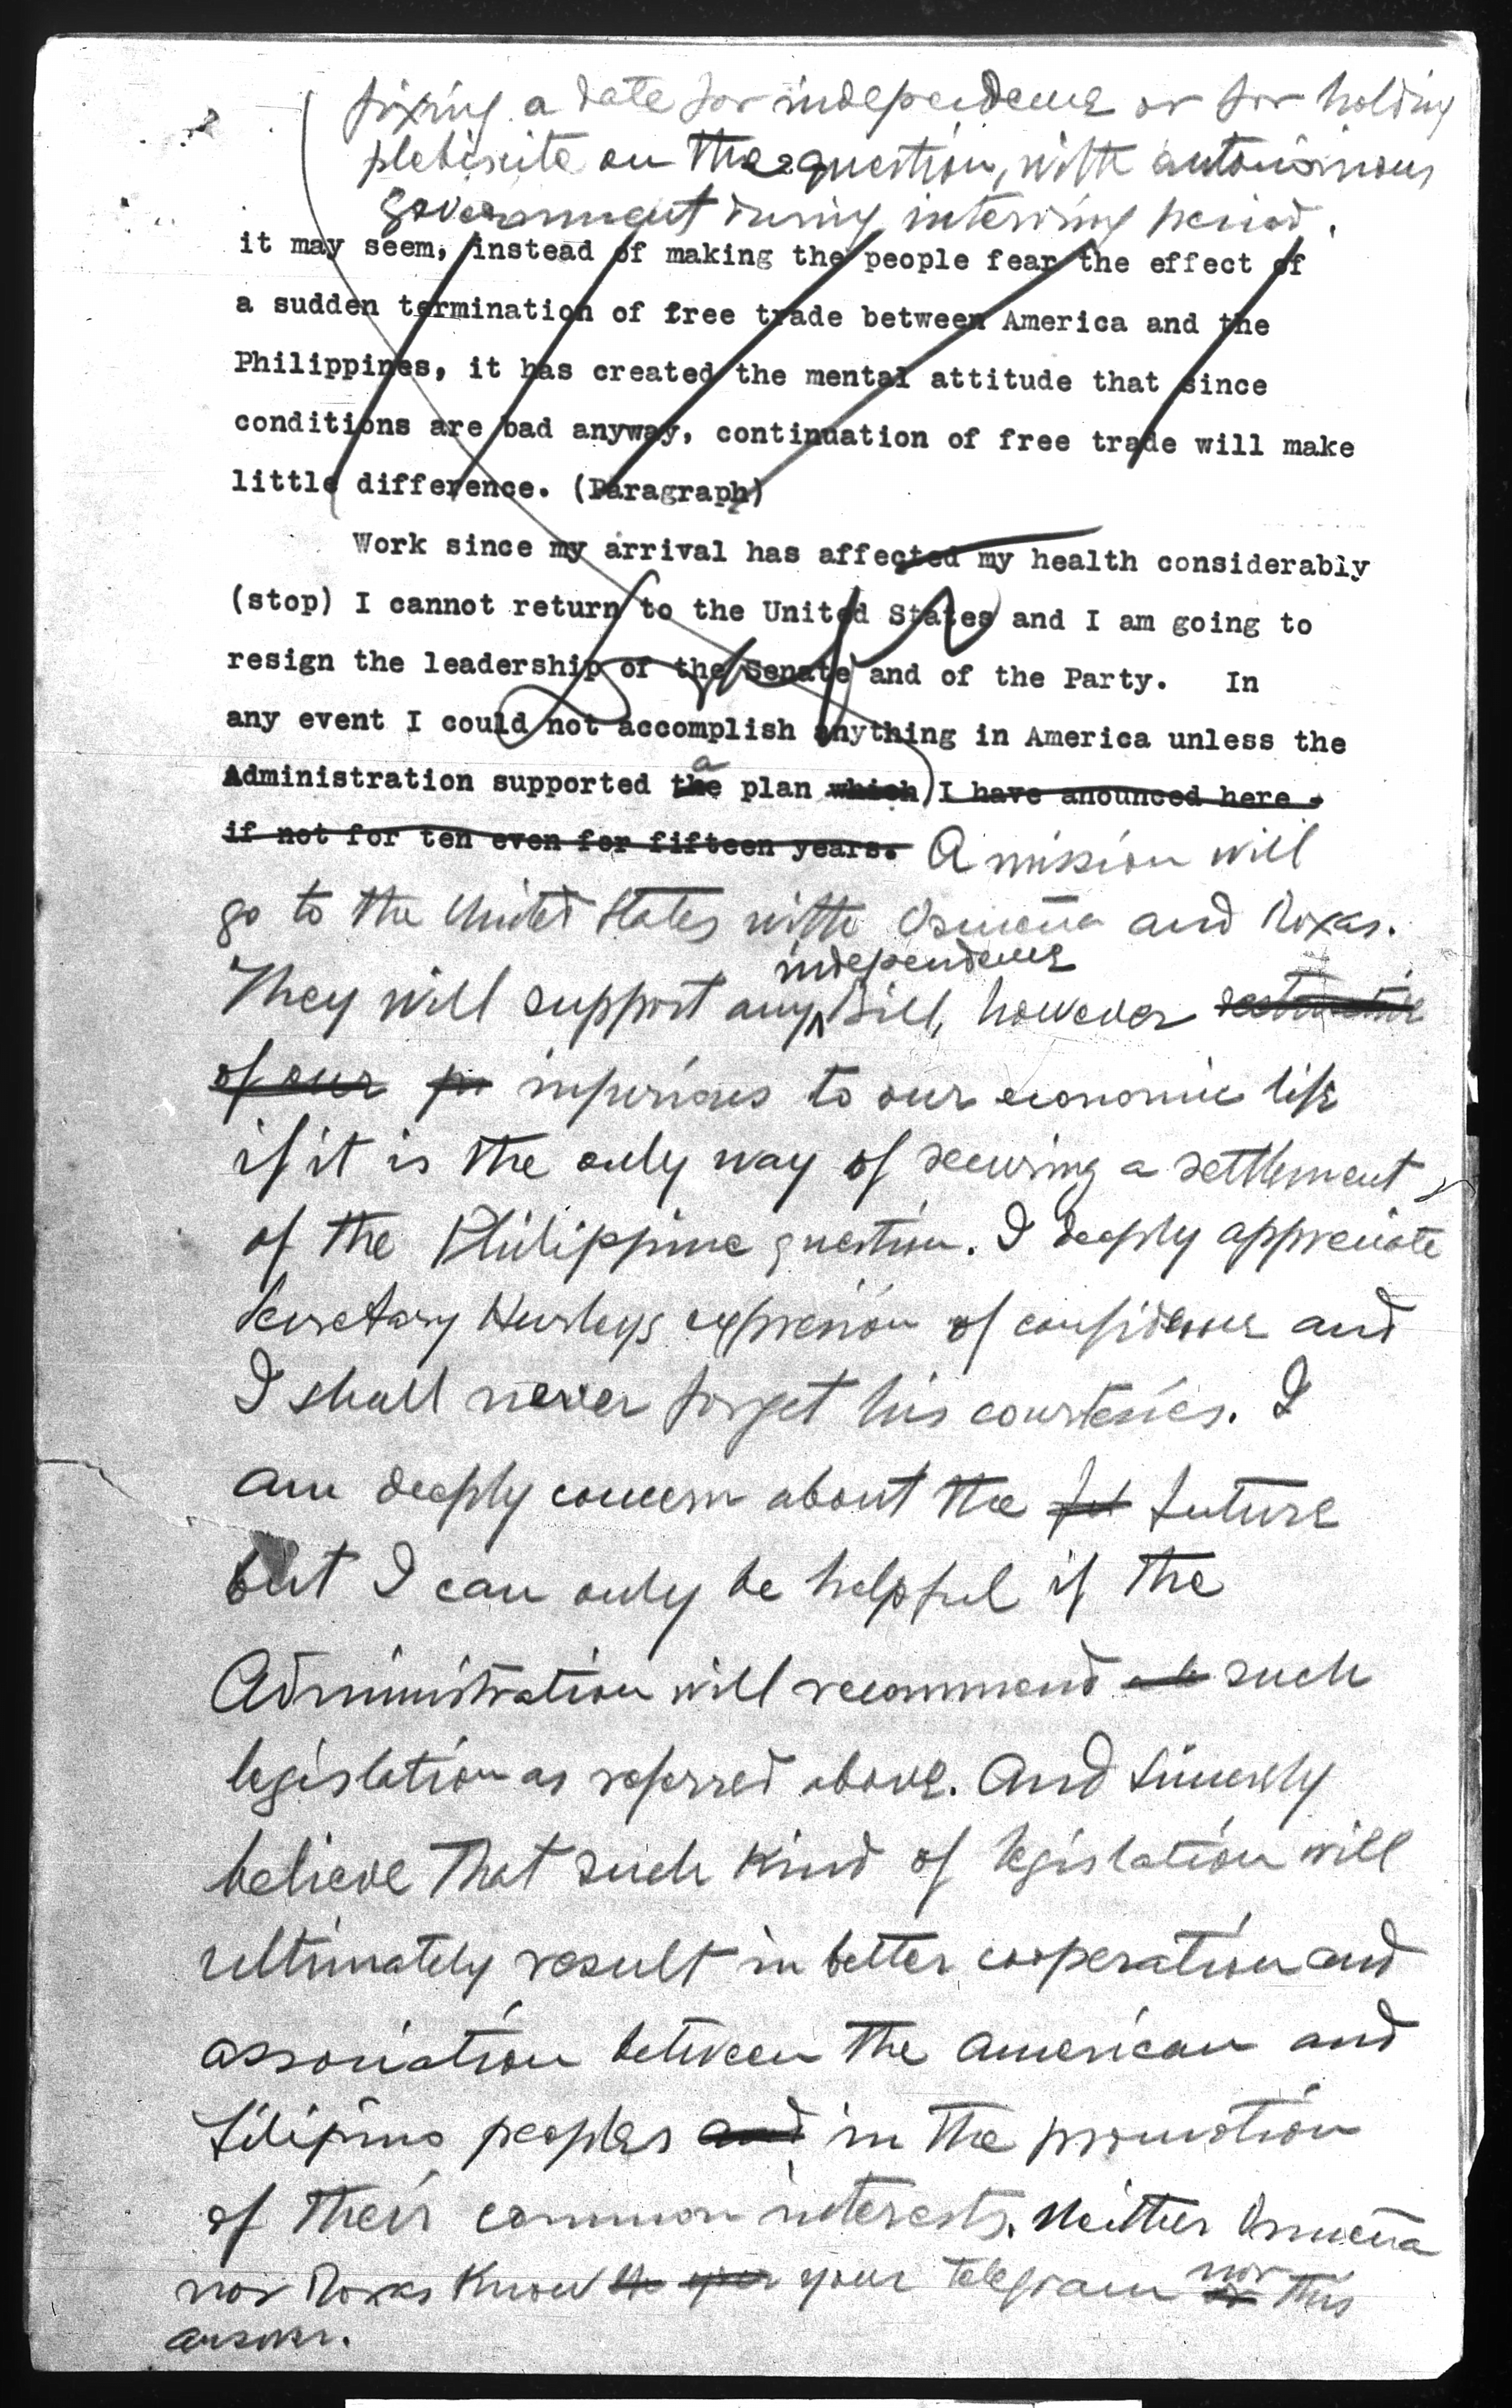 fixing a date for independence or for holding
plebiscite on the question, with autonomous
government during intervining period.
it may seem, instead of making the people fear the effect of
a sudden termination of free trade between America and the
Philippines, it has created the mental attitude that since
conditions are bad anyway, continuation of free trade will make
little difference. (Paragraph)
Work since my arrival has affected my health considerably
(stop) I cannot return to the United States and I am going to
resign the leadership of the Senate and of the Party. In
any event I could not accomplish anything in America unless the
a
Administration supported the plan which I have anounced here -
if not for ten even for fifteen years. A mission will
go to the United States with Osmeña and Roxas.
independence
They will support any bill, however
of our injurious to our economic life
if it is the only way of securing a settlement
of the Philippine question. I deeply appreciate
Secretary Hurleys expression of confidence and
I shall never forget his courtesies. I
am deeply concern about the fut future
but I can only be helpful if the
Administration will recommend such
legislation as referred above. And sincerely
believe that such kind of legislation will
ultimately result in better cooperation and
association between the american and
Filipino peoples and in the promotion
of their common interests. Neither Osmeña
nor
nor Roxas know your telegram or this
answer.